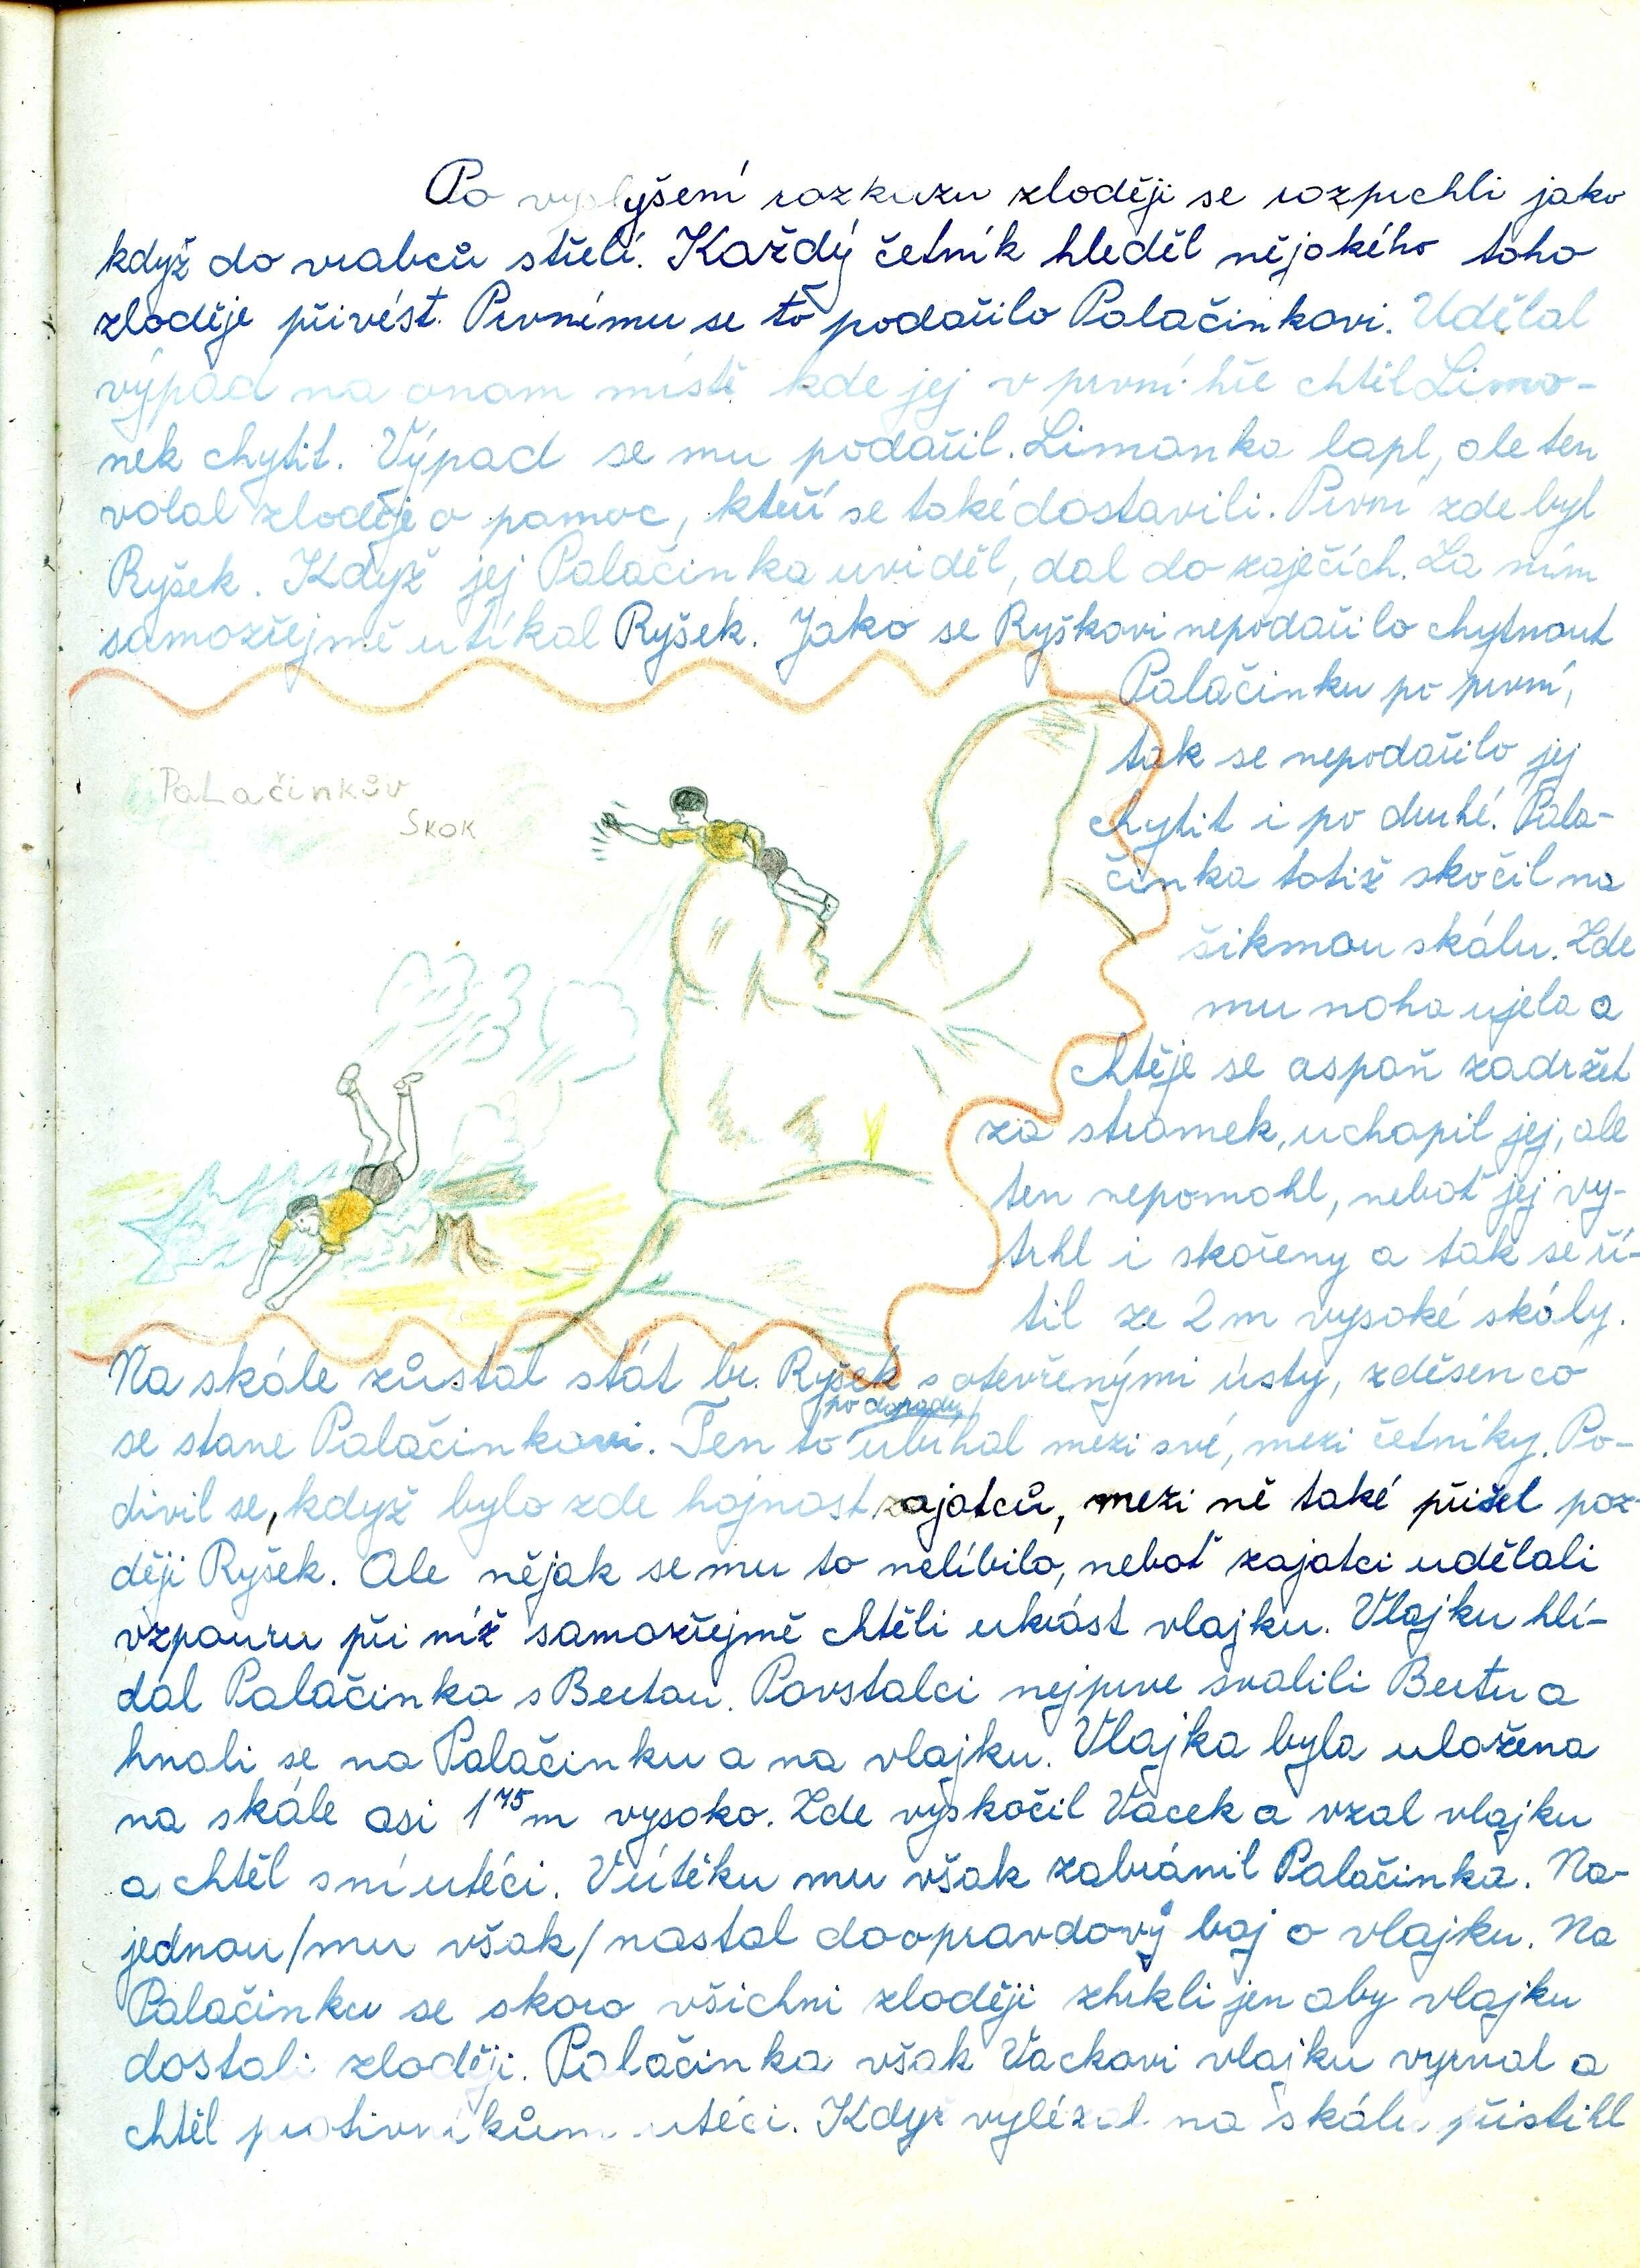 Po vyslyšení rozkazu zloději se rozprchli jako
když do vrabců střelí. Každý četník hleděl nějakého toho
zloděje přivést. Prvnímu se to podařilo Palačinkovi. Udělal
výpad na onom místě kde jej v první hře chtěl Limo-
nek chytit. Výpad se mu podařil. Limonka lapl, ale ten
volal zloděje o pomoc, kteří se také dostavili. První zde byl
Ryšek. Když jej Palačinka uviděl, dal do zaječích. Za ním
samozřejmě utíkal Ryšek. Jako se Ryškovi nepodařilo chytnout
Palačinku po první,
tak se nepodařilo jej
chytit i po druhé. Pala-
činka totiž skočil na
šikmou skálu. Zde
mu noha ujela a
chtěje se aspoň zadržet
za stromek, uchopil jej, ale
ten nepomohl, neboť jej vy-
trhl i skořeny a tak se ří-
til ze 2 m vysoké skály.
Palačinkův
Skok
Na skále zůstal stát br. Ryšek s otevřenými ústy, zděšen co
se stane Palačinkovi. Ten to po dopadu ubíhal mezi své, mezi četníky. Po-
divil se, když bylo zde hojnost zajatců, mezi ně také přišel poz-
ději Ryšek. Ale nějak se mu to nelíbilo, neboť zajatci udělali
vzpouru při níž samozřejmě chtěli ukrást vlajku. Vlajku hlí-
dal Palačinka s Bertou. Povstalci nejprve svalili Bertu a
hnali se na Palačinku a na vlajku. Vlajka byla uložena
na skále asi 1⁷⁵m vysoko. Zde vyskočil Vacek a vzal vlajku
a chtěl sní utéci. V útěku mu však zabránil Palačinka. Na-
jednou/mu však/nastal doopravdový boj o vlajku. Na
Palačinku se skoro všichni zloději zhrkli jen aby vlajku
dostali zloději. Palačinka však Vackovi vlajku vyrval a
chtěl protivníkům utéci. Když vylézal na skálu přistihl